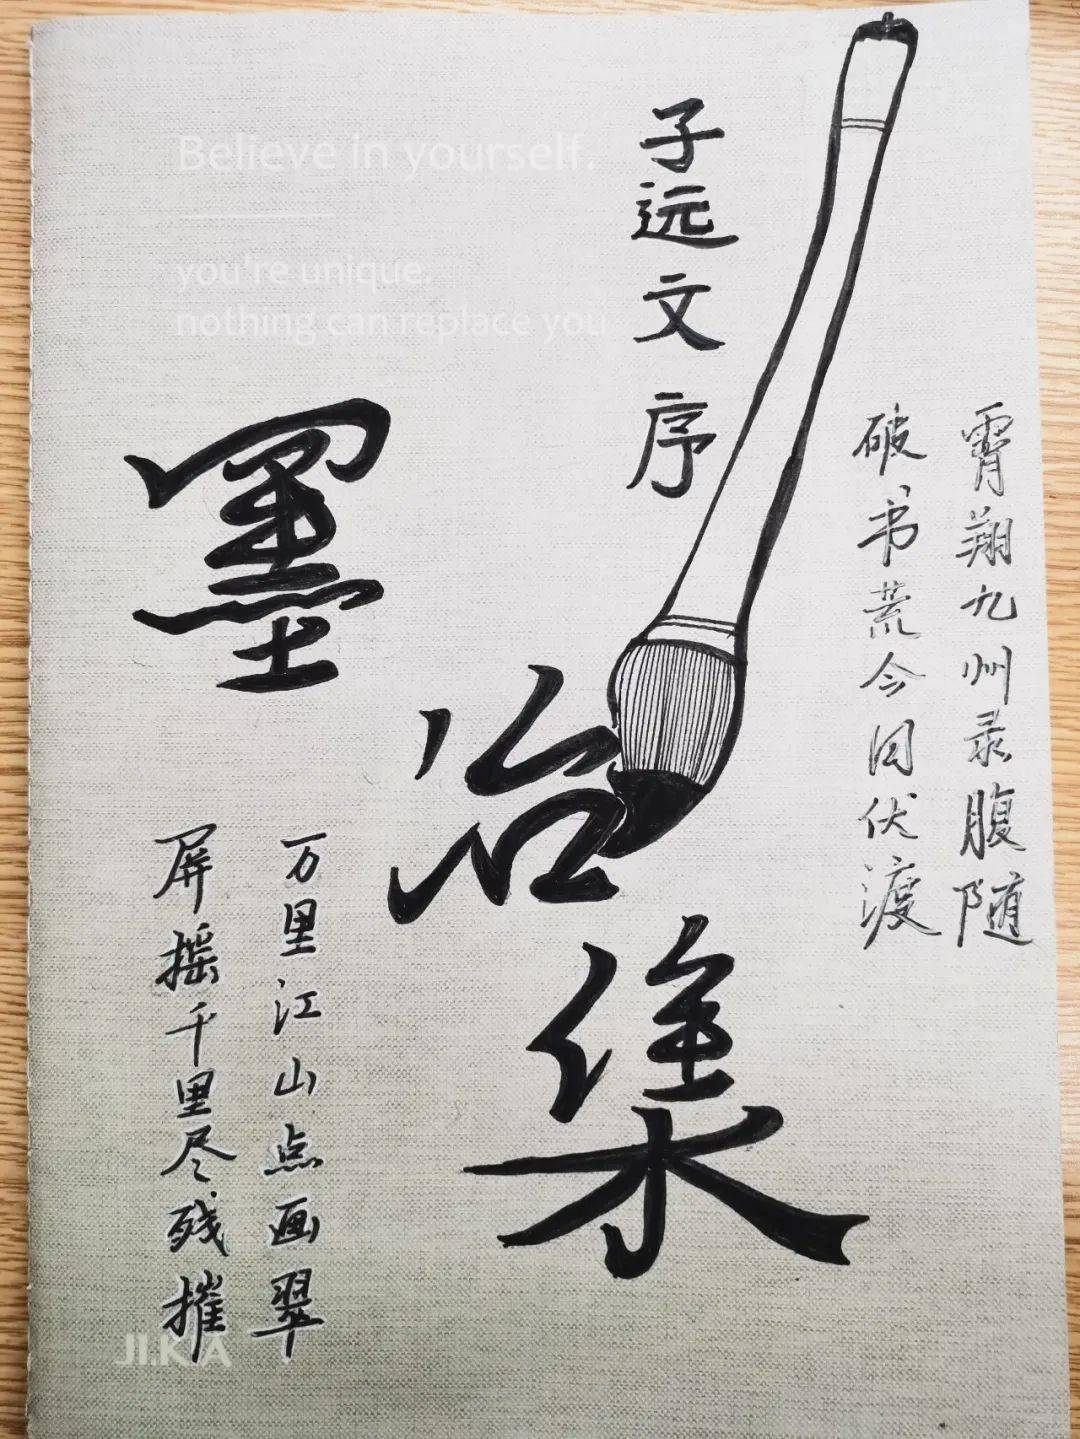 Believe in yourself.
you're unique.
nothing can replace you
子远文序
霄翔九州录腹随
破书荒今回伏渡
墨冶集
万里江山点画翠
屏摇千里尽残摧
JI.KA